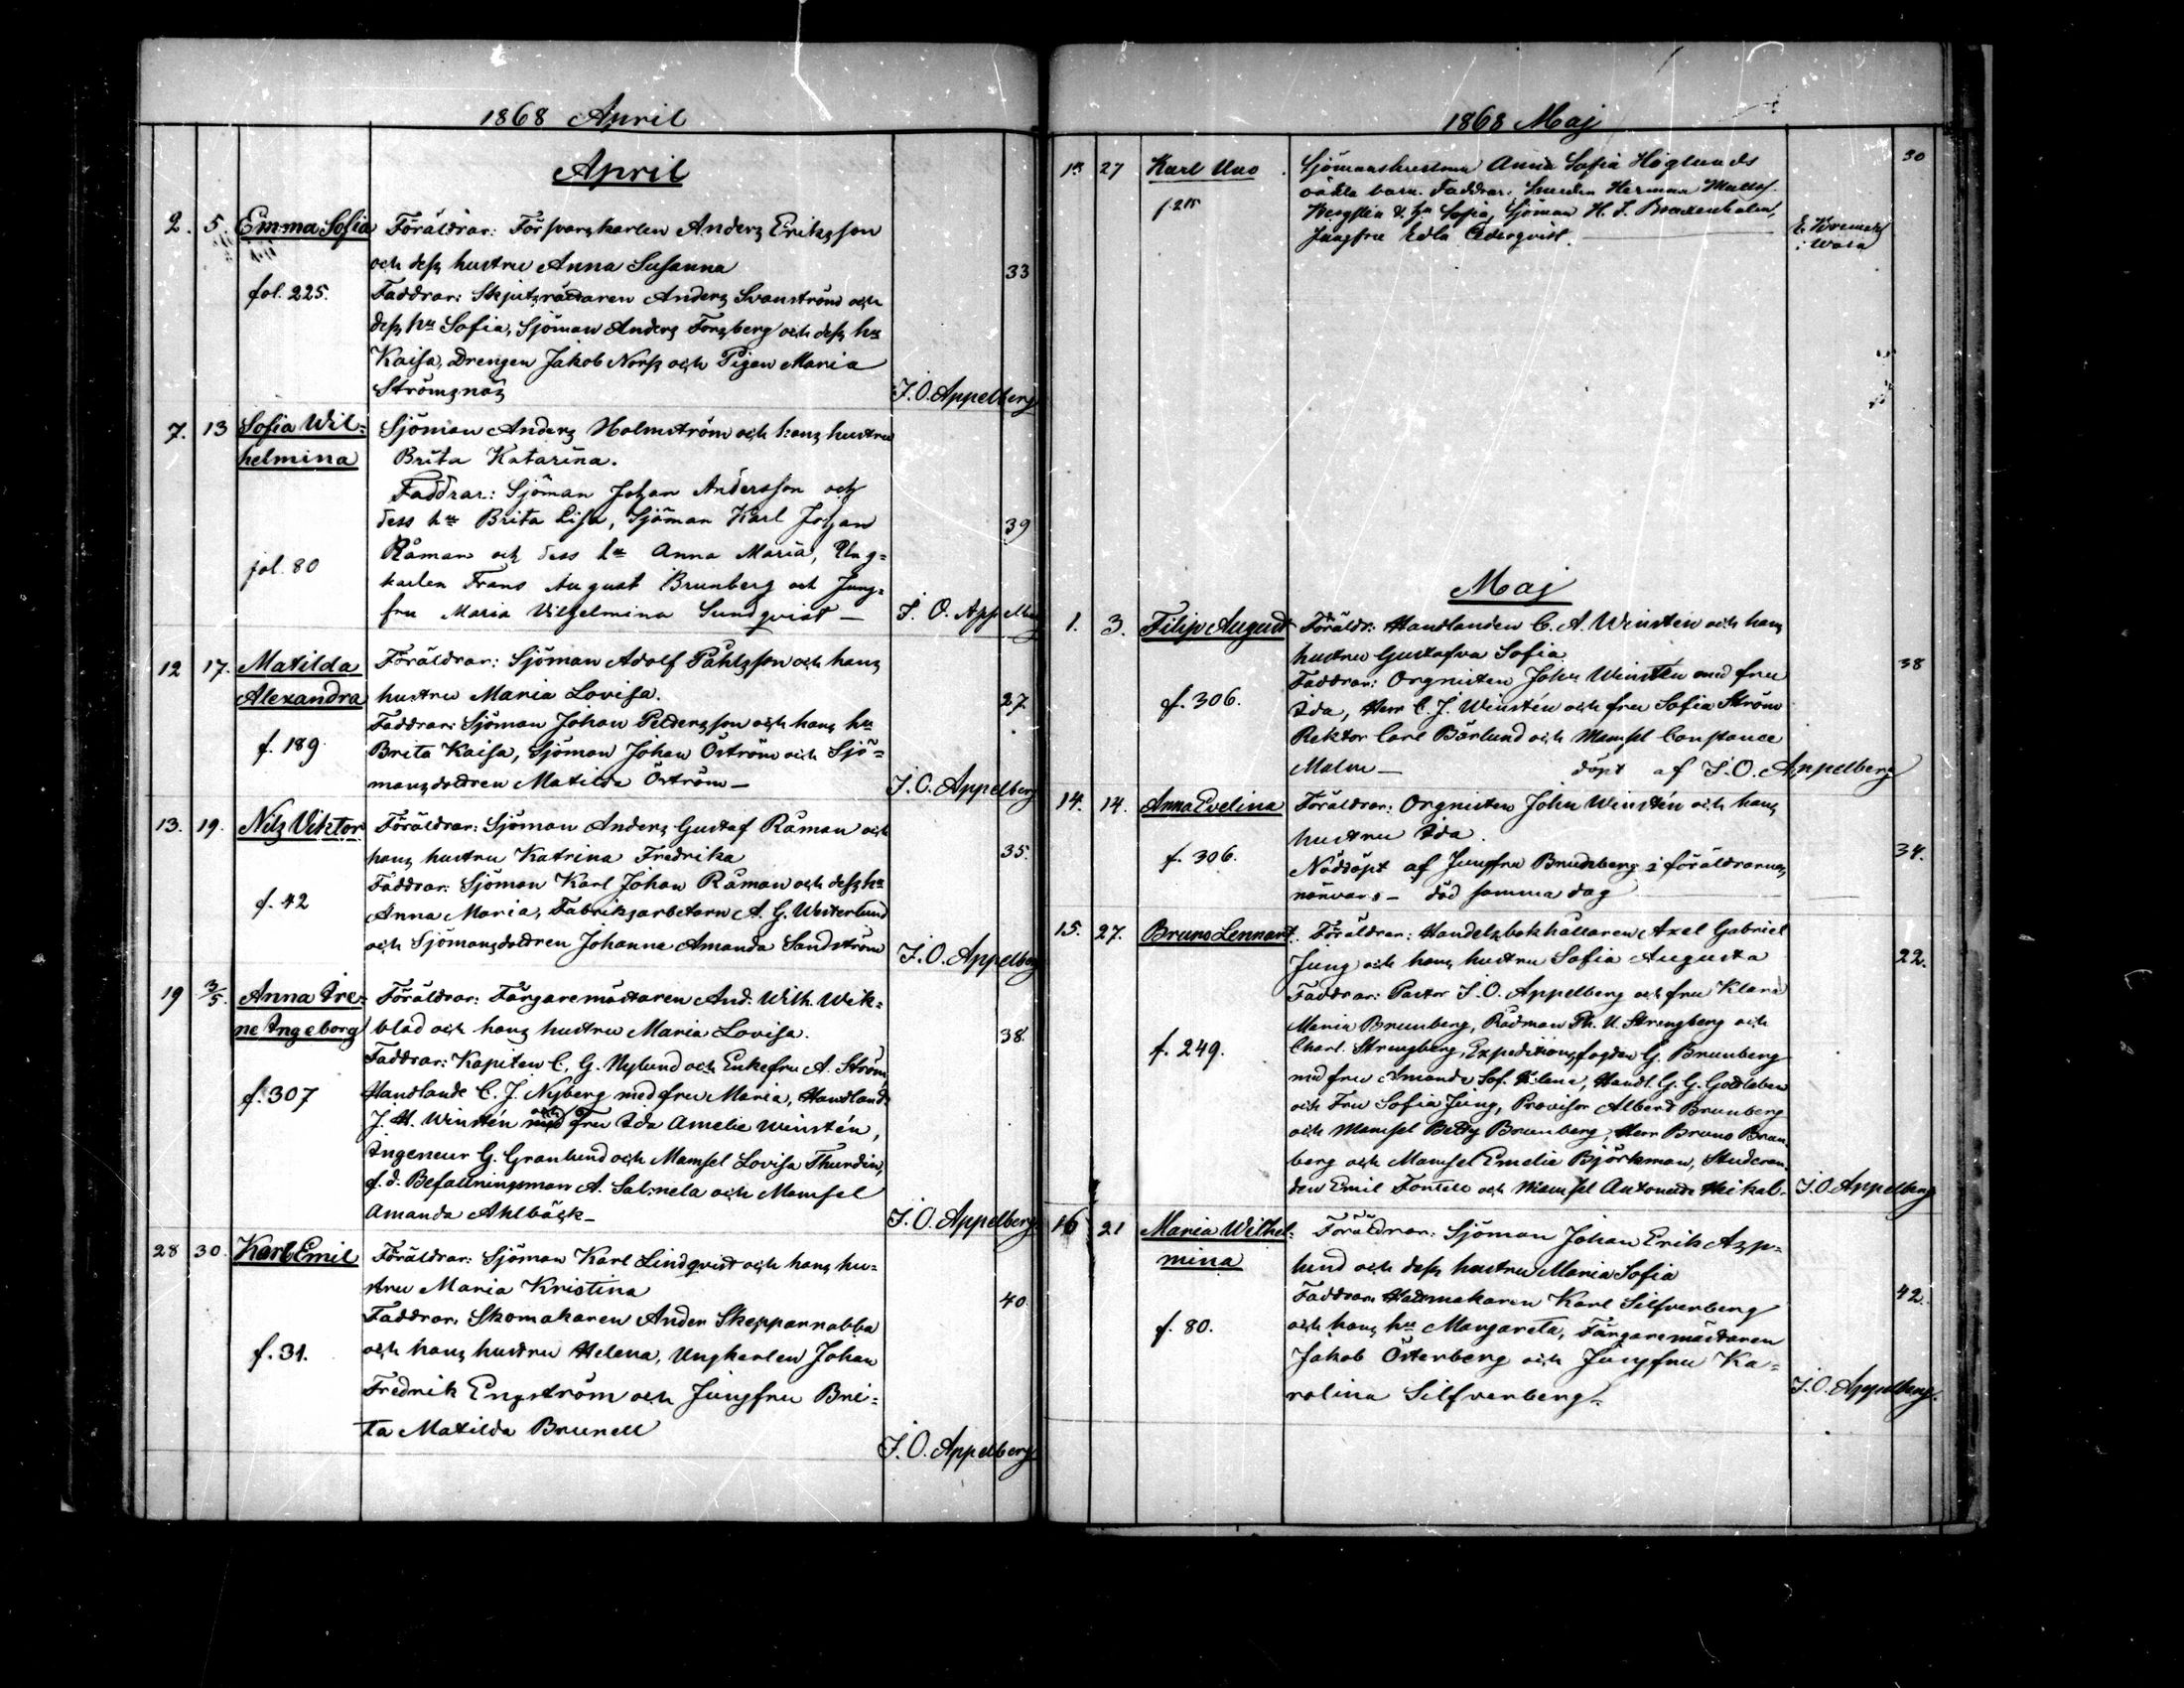 1868 April
April
2. 5. Emma Sofia Föräldrar: Försvarskarlen Anders Eriksson
och dess hustru Anna Susanna
33
fol. 225. Faddrar: Skjutsrättaren Anders Svanström och
dess hu Sofia, Sjöman Anders Forsberg och dess hu
Kaisa, Drengen Jakob Norss och Pigan Maria
Strömsnäs J. O. Appelberg
7. 13 Sofia Wil= Sjöman Anders Holmström och hans hustru
helmina Brita Katarina.
Faddrar: Sjöman Johan Andersson och
dess hu Brita Lisa, Sjöman Karl Johan 39
fol. 80 Råman och dess hu Anna Maria, Ung=
karlen Frans August Brunberg och Jung=
fru Maria Vilhelmina Sundqvist — J. O. Appelberg
12 17. Matilda Föräldrar: Sjöman Adolf Påhlsson och hans
Alexandra hustru Maria Lovisa. 27
Faddrar: Sjöman Johan Pettersson och hans hu
f. 189. Brita Kaisa, Sjöman Johan Öström och Sjö=
mansdottren Matilda Öström — J. O. Appelberg
13. 19. Nils Viktor Föräldrar: Sjöman Anders Gustaf Råman och
hans hustru Katrina Fredrika 35.
Faddrar: Sjöman Karl Johan Råman och dess hu
f. 42 Anna Maria, Fabriksarbetarn A. G. Westerlund
och Sjömansdottren Johanna Amanda Sandström J. O. Appelberg
19 3/5. Anna Ire= Föräldrar: Färgaremästaren And. Wilh. Wik=
ne Ingeborg blad och hans hustru Maria Lovisa. 38.
Faddrar: Kapiten C. G. Nylund och Enkefru A. Ström,
f. 307 Handlande C. J. Nyberg med fru Maria, Handland.
J. H. Winstén och Fru Ida Amelie Winstén,
Ingeneur G. Granlund och Mamsel Lovisa Thurdin,
f. d. Befallningsman A. Salmela och Mamsel
Amanda Ahlbäck — J. O. Appelberg
28 30. Karl Emil Föräldrar: Sjöman Karl Lindqvist och hans hu=
stru Maria Kristina 40
Faddrar. Skomakaren Anders Skepparnabba
f. 31. och hans hustru Helena, Ungkarlen Johan
Fredrik Engström och Jungfru Bri=
ta Matilda Brunell
J. O. Appelberg
1868 Maj
27 Karl Uno Sjömanshustrun Anna Sofia Höglunds 30
oäkta barn. Faddrar: Smeden Herman
hu Sofia, Sjöman H. J.
Jungfru Edla Cederqvist. —
i Wasa
Maj
1. 3. Filip August Föräldr: Handlanden C. A. Winstén och hans
hustru Gustafva Sofia 38
Faddrar: Orgnisten John Winstén med fru
f. 306. Ida, Herr C. J. Winstén och fru Sofia Ström
Rektor Carl Bärlund och Mamsel Constance
Malm — döpt af J. O. Appelberg
14. 14. Anna Evelina Föräldrar: Orgnisten John Winstén och hans
hustru Ida.
f. 306. Nöddöpt af Jungfru Brunberg i föräldrarnas 34.
närvaro — död samma dag
15. 27. Bruno Lennart. Föräldrar: Handelsbokhållaren Axel Gabriel
Jung och hans hustru Sofia Augusta 22.
Faddrar: Pastor J. O. Appelberg och fru Klara
Maria Brunberg, Rådman Th. U. Strengberg och
f. 249. Charl. Strengberg, Expeditionsfogden G. Brunberg
med fru Amanda Sof. Helena, Handl. G. G. Gottleben
och Fru Sofia Jung, Provisor Albert Brunberg
och Mamsel Betty Brunberg, Herr Bruno Brun=
berg och Mamsel Emelie Björkman, Studeran=
den Emil Fontell och Mamsel Antonette Mikal. J. O. Appelberg
16 21 Maria Wilhel= Föräldrar: Sjöman Johan Erik Asp=
mina lund och dess hustru Maria Sofia
Faddrar. Hattmakaren Karl Silfverberg 42.
f. 80. och hans hu Margareta, Färgaremästaren
Jakob Österberg och Jungfru Ka=
rolina Silfverberg. J. O. Appelberg.